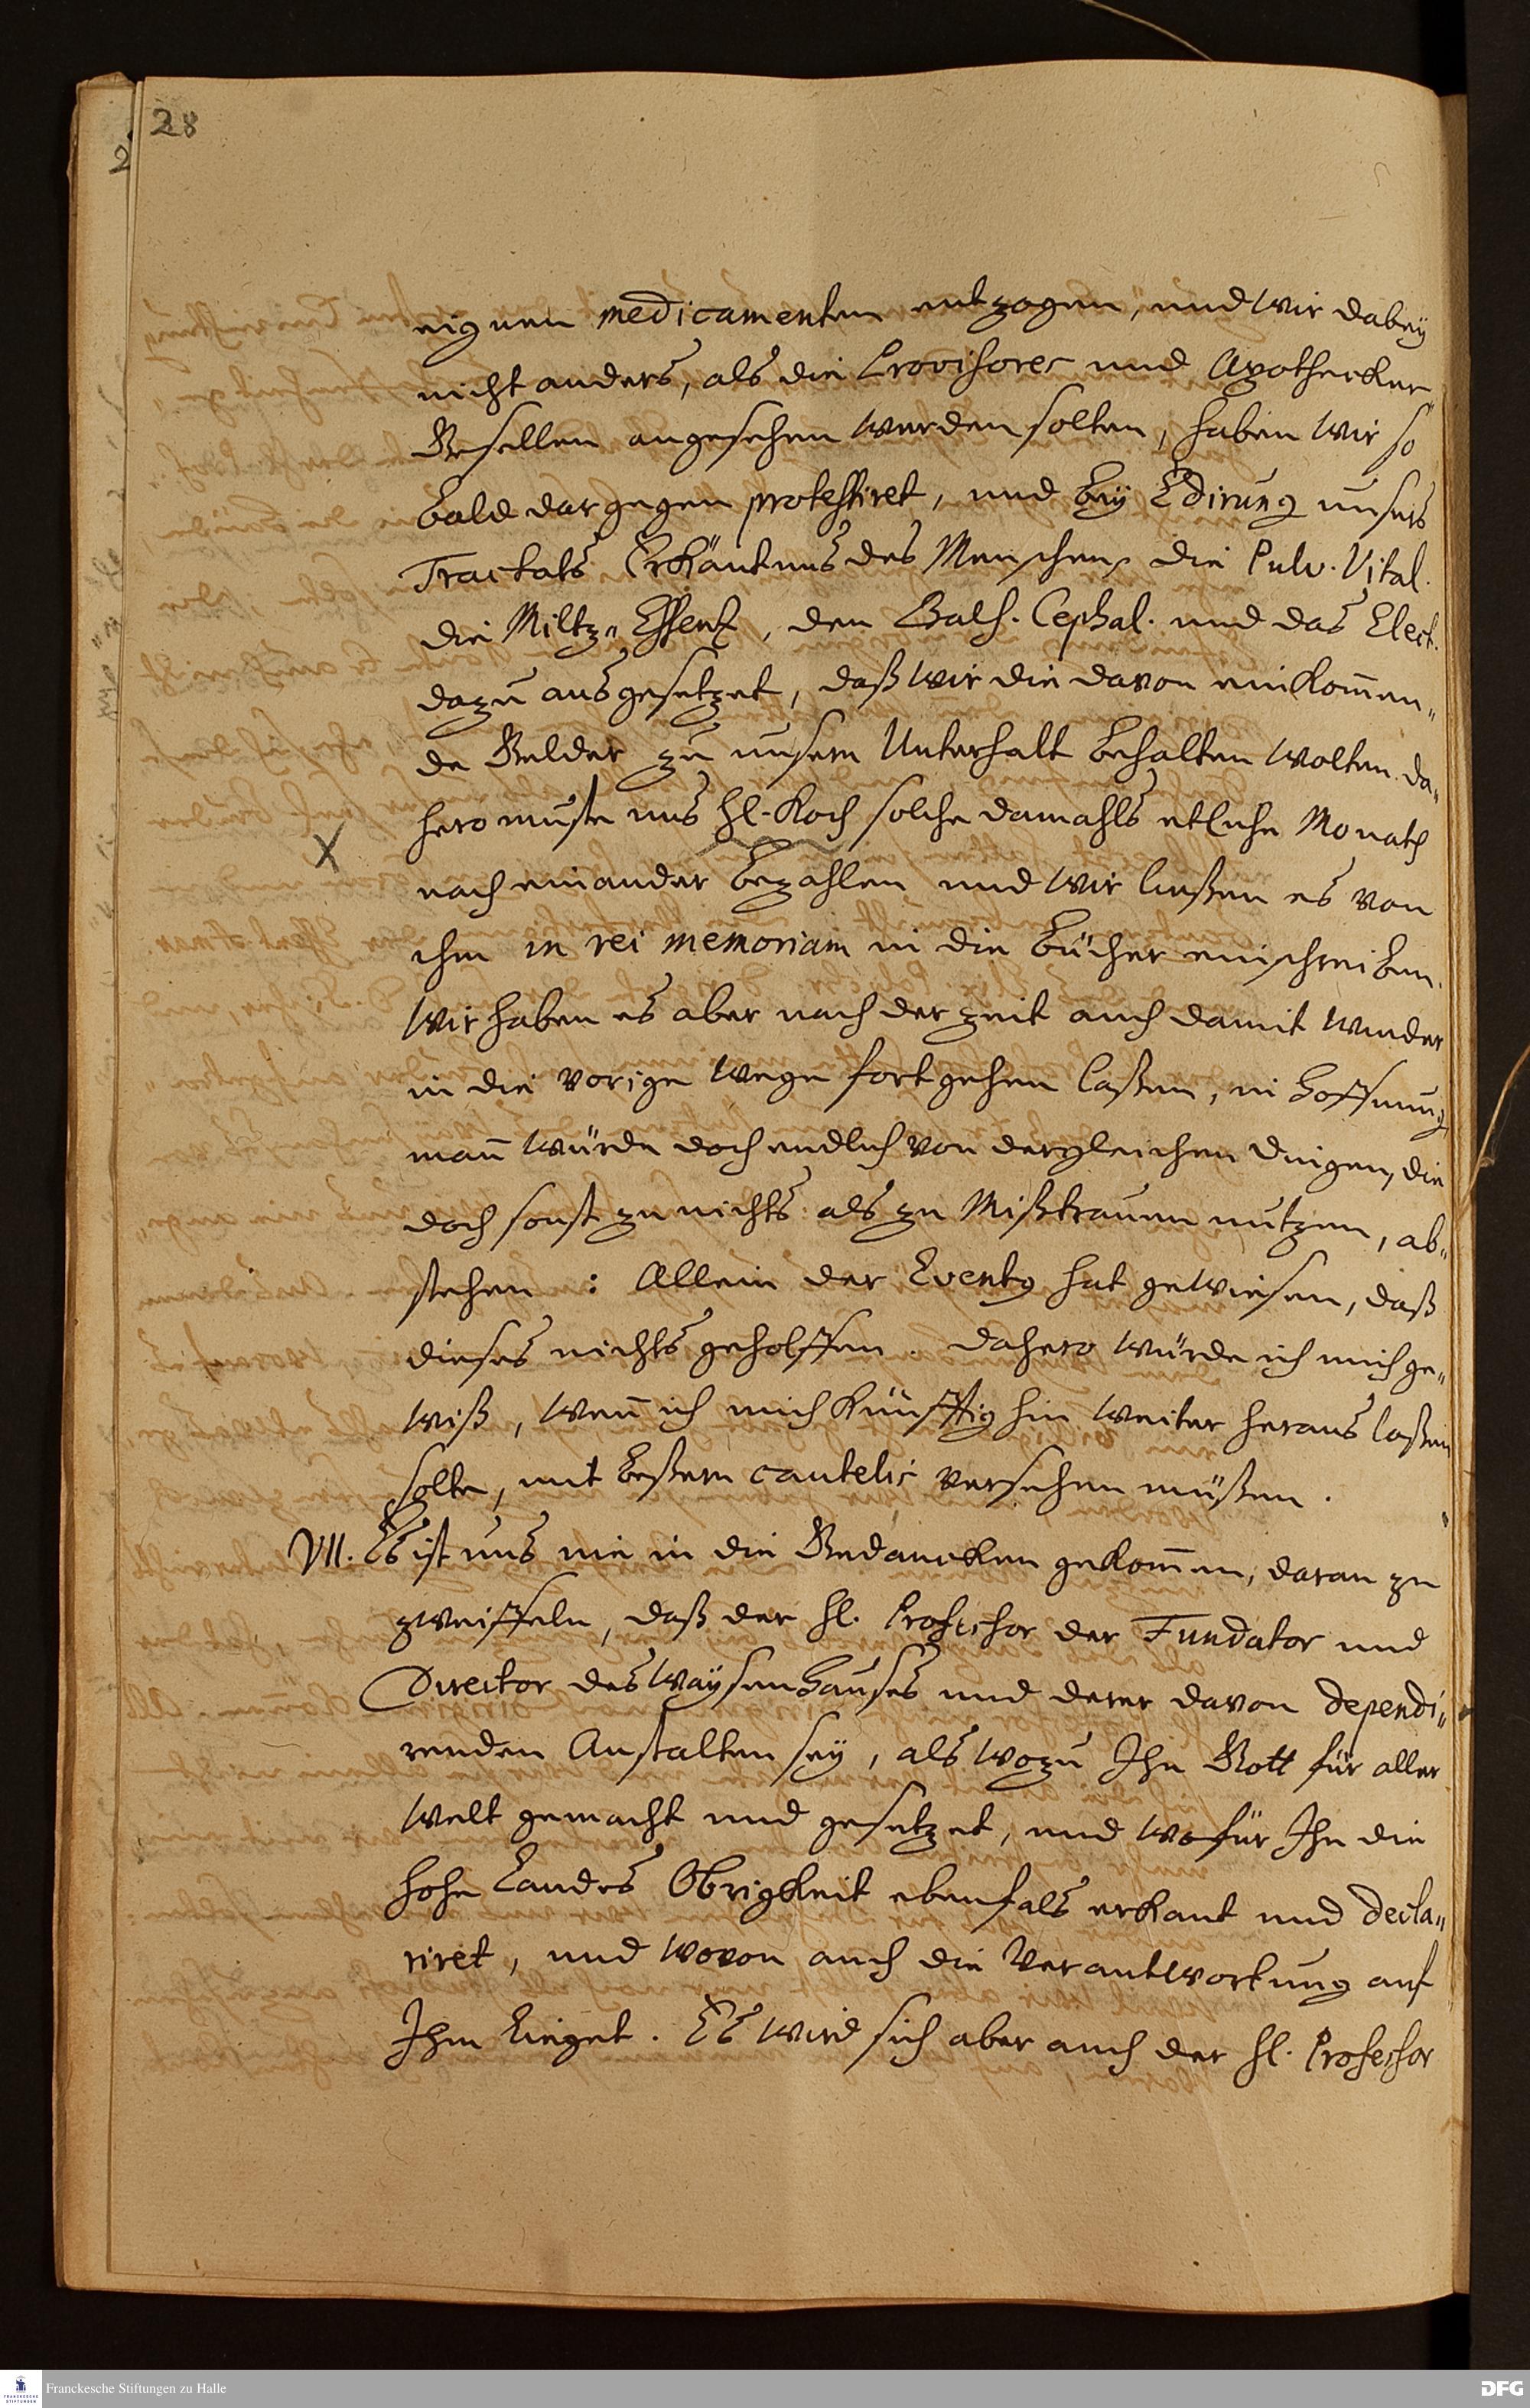 28
2
eignen medicamenten entzogen, und wir dabeÿ
nicht anders, als die Provisores und Apothecker-
Gesellen angesehen werden solten, haben wir so
bald dargegen protestiret, und beÿ Edirung unsers
Tractats Erkäntnus des Menschen die Pulv. Vital.
die Miltz-Essentz, den Bals. Cephal. und das Elect.
dazu ausgesetzet, daß wir die davon einkom̄en-
de Gelder zu unserm Unterhalt behalten wolten. da-
hero muste uns H. Koch solche damahls etliche Monath
nach einander bezahlen und wir ließen es von
ihm in rei memoriam in die bücher einschreiben.
Wir haben es aber nach der zeit auch damit wieder
in die vorige wege fortgehen laßen, in Hoffnung
man̄ würde doch endlich von dergleichen dingen, die
doch sonst zu nichts als zu Mißtrauen nutzen, ab-
stehen: Allein der Eventq hat gewiesen, daß
dieses nichts geholffen. dahero würde ich mich ge-
wiß, wen̄ ich mich künfftig hin weiter heraus laßen
solte, mit beßern cautelis versehen müßen.
VII. Es ist uns nie in die Gedancken gekom̄en, daran zu
zweiffeln, daß der H. Professor der Fundator und
Director des Waÿsenhauses und derer davon dependi-
renden Anstalten seÿ, als wozu Ihn Gott für aller
Welt gemacht und gesetzet, und wofür Ihn die
hohe Landes Obrigkeit ebenfals erkant und decla-
riret, und wovon auch die Verantwortung auf
Ihm lieget. Es wird sich aber auch der H. Professor
Franckesche Stiftungen zu Halle
DFG